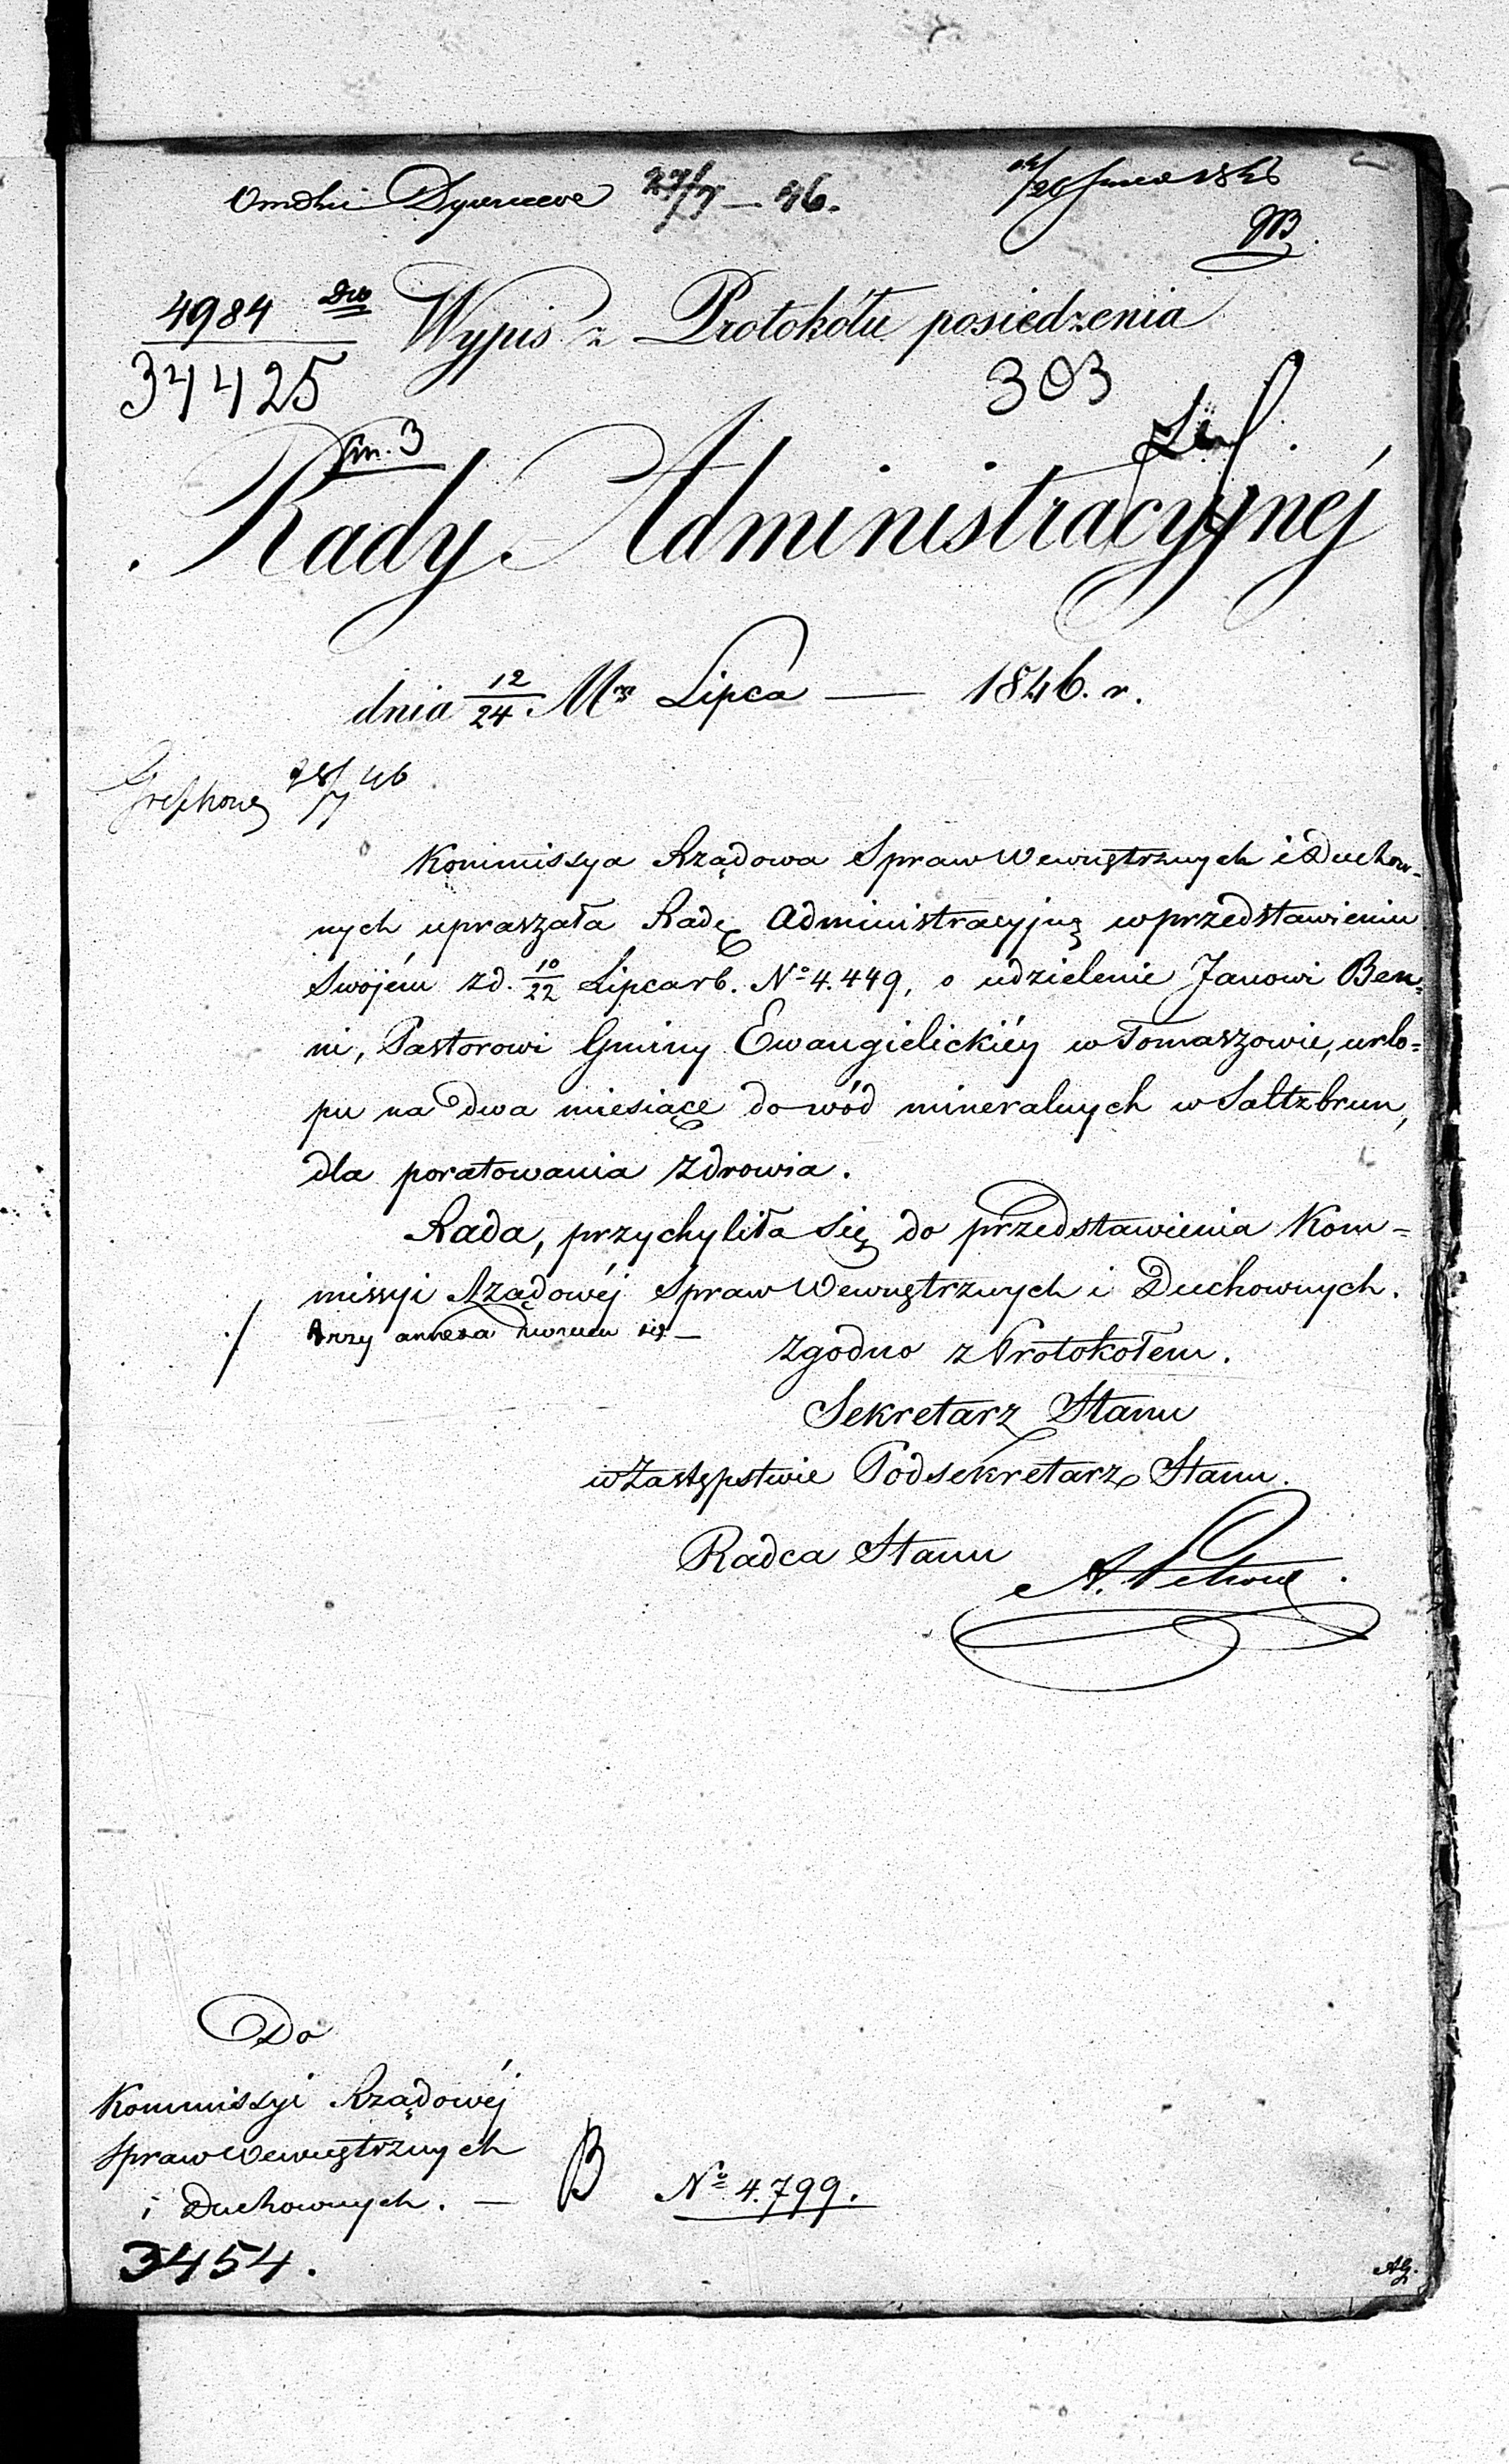 27/7 — 46.
4984
Wypis z Protokółu posiedzenia
34425
303
Rady Administracyjnéj
dnia 12/24 Mca Lipca — 1846. r.
28/7 46
Kommissya Rządowa Spraw Wewnętrznych i Duchow-
nych upraszała Radę Administracyjną w przedstawieniu
swojém z d. 10/22 Lipca r b. No 4.449, o udzielenie Janowi Ben=
ni, Pastorowi Gminy Ewangielickiéy w Tomaszowie, urlo=
pu na dwa miesiące do wód mineralnych w Saltzbrun,
dla poratowania zdrowia.
Rada, przychyliła się do przedstawienia Kom=
missyi Rządowéj Spraw Wewnętrznych i Duchownych.
zgodno z Protokołem.
Sekretarz Stanu
w Zastępstwie Podsekretarz Stanu.
Radca Stanu
Do
Kommissyi Rządowéj
Spraw Wewnętrznych
i Duchownych. —
B No 4.799.
3454.